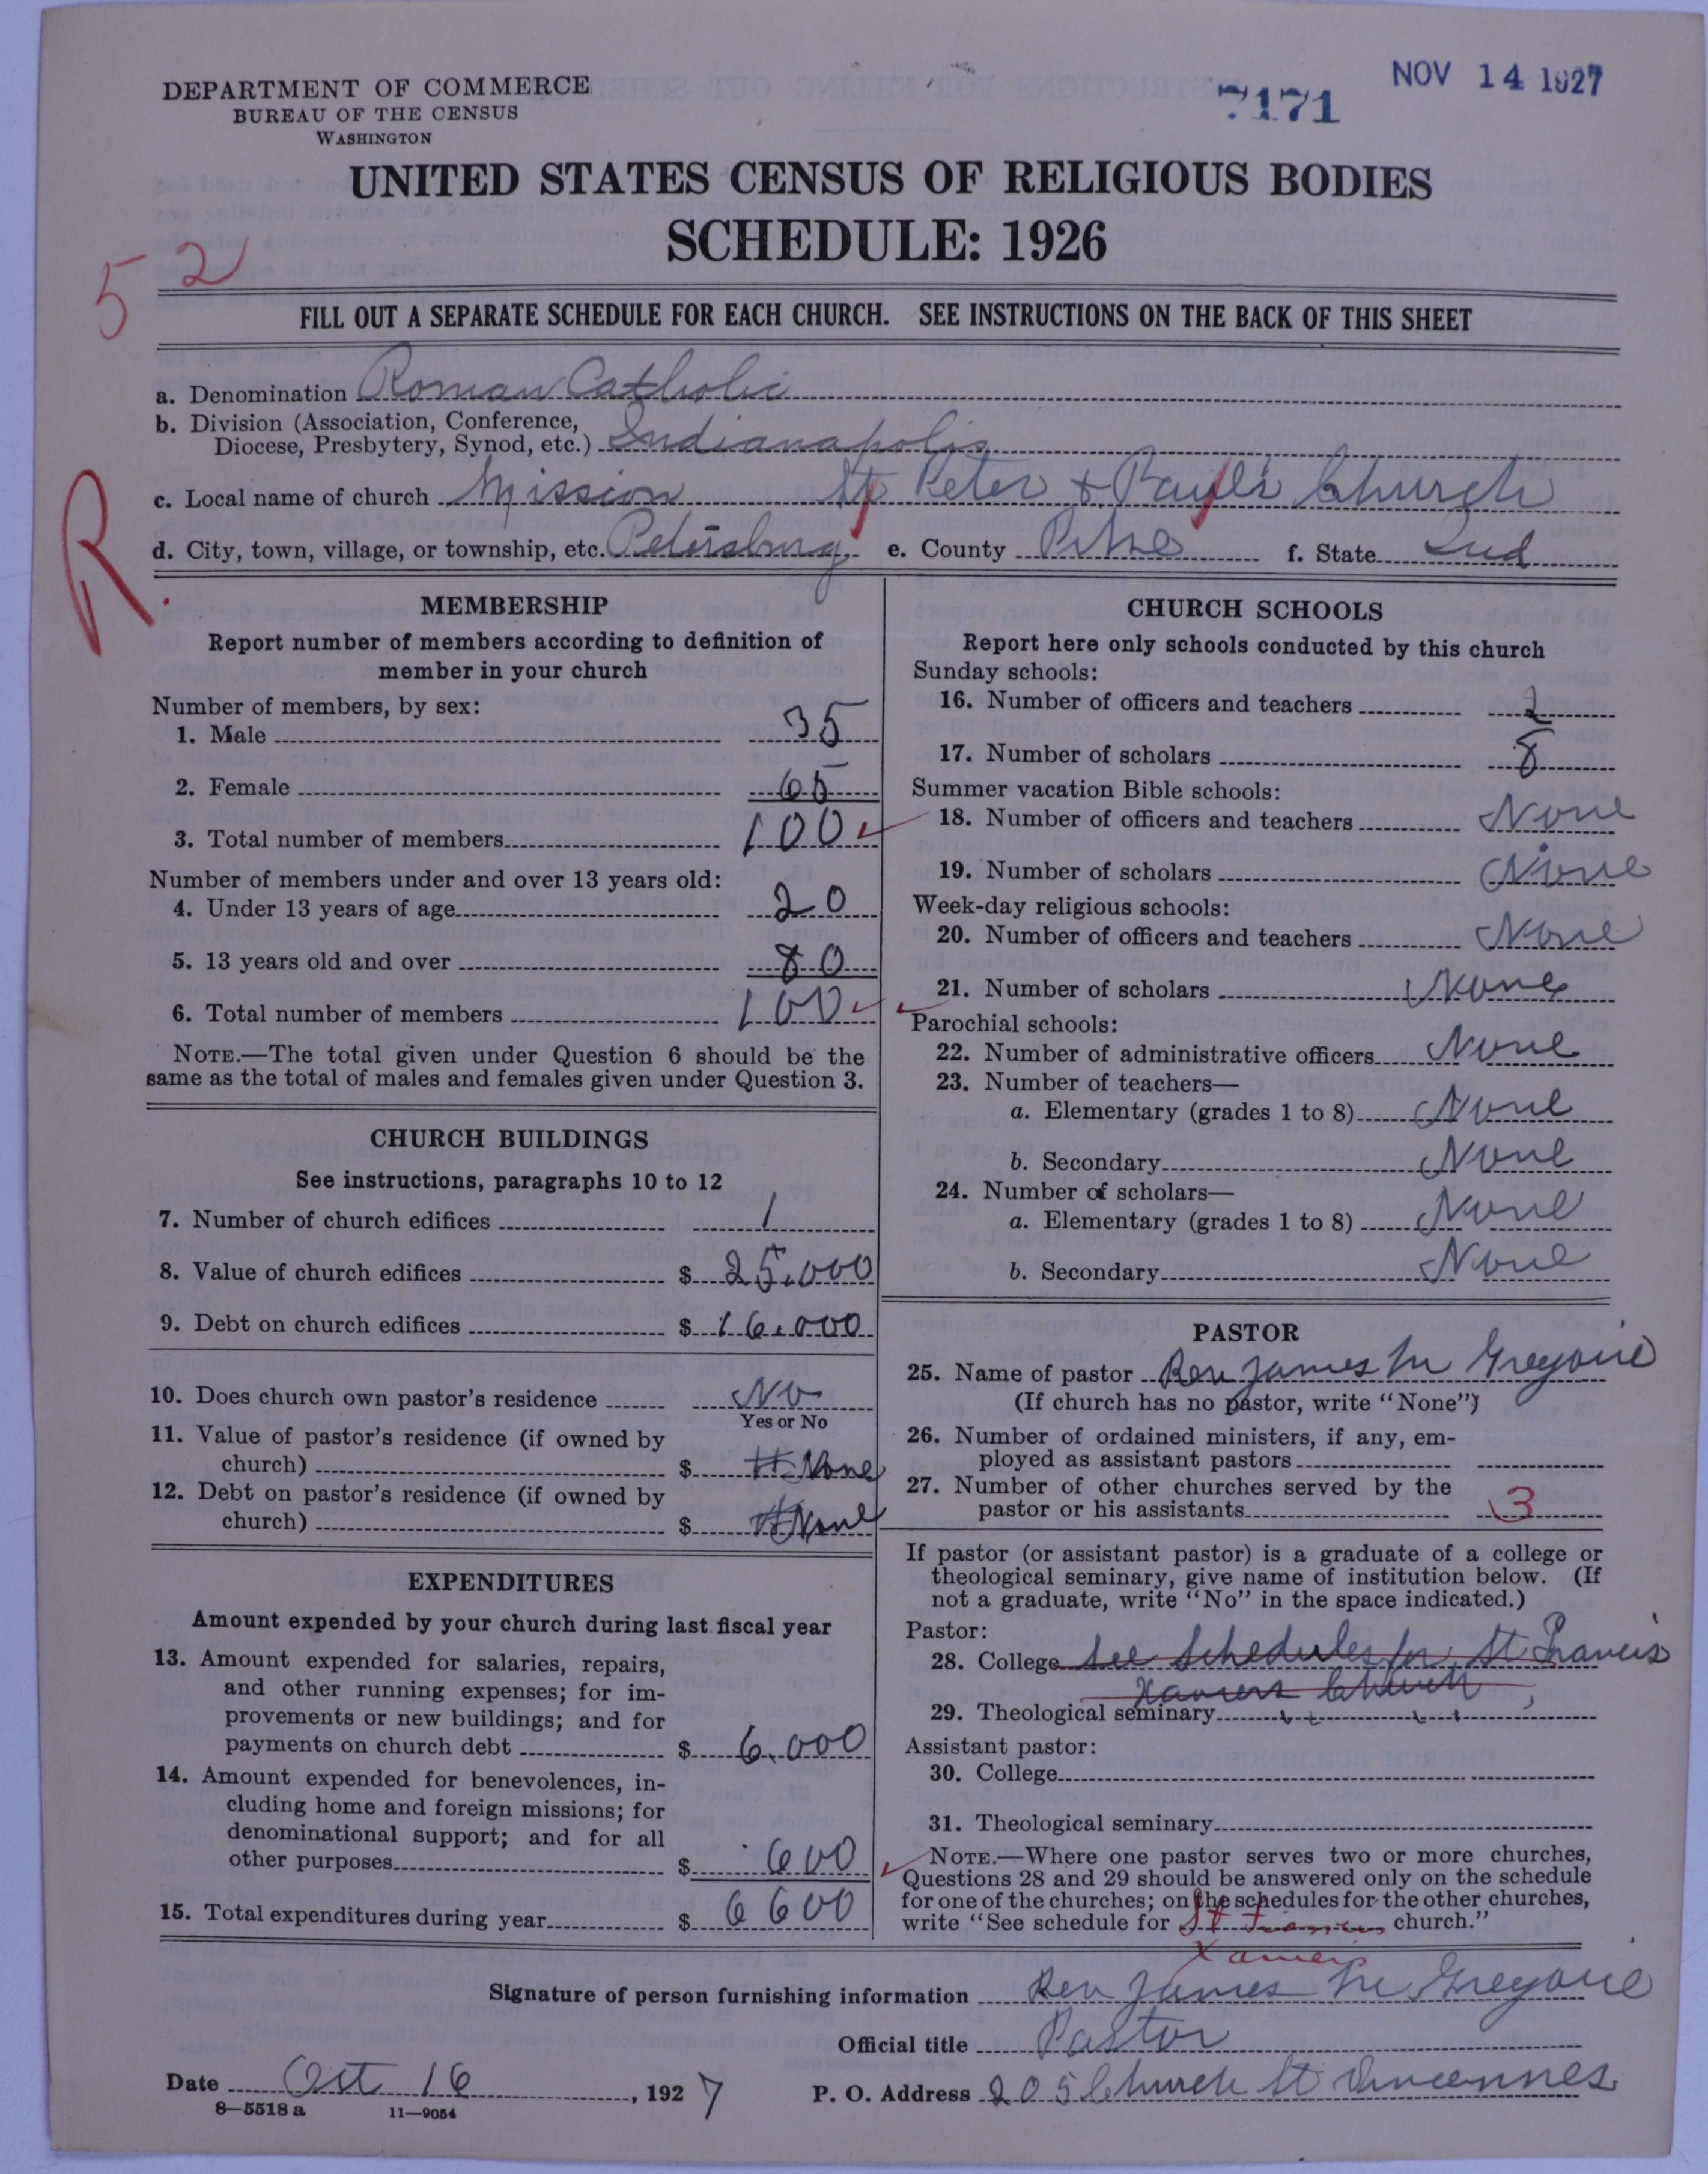 DEPARTMENT OF COMMERCE
BUREAU OF THE CENSUS
WASHINGTON
7171
NOV 14 1927
UNITED STATES CENSUS OF RELIGIOUS BODIES
SCHEDULE: 1926
52
FILL OUT A SEPARATE SCHEDULE FOR EACH CHURCH. SEE INSTRUCTIONS ON THE BACK OF THIS SHEET
a. Denomination Roman Catholic
b. Division (Association, Conference,
Diocese, Presbytery, Synod, etc.) Indianapolis
c. Local name of church Mission St Peter & Paul's Church
d. City, town, village, or township, etc. Petersburg. e. County Pike f. State Ind
R.
MEMBERSHIP
Report number of members according to definition of
member in your church
Number of members, by sex:
1. Male 35
2. Female 65
3. Total number of members 100
Number of members under and over 13 years old:
4. Under 13 years of age 20
5. 13 years old and over 80
6. Total number of members 100
NOTE.—The total given under Question 6 should be the
same as the total of males and females given under Question 3.
CHURCH BUILDINGS
See instructions, paragraphs 10 to 12
7. Number of church edifices 1
8. Value of church edifices $ 25,000
9. Debt on church edifices $ 16,000
10. Does church own pastor's residence No
Yes or No
11. Value of pastor's residence (if owned by
church) $ None
12. Debt on pastor's residence (if owned by
church) $ None
EXPENDITURES
Amount expended by your church during last fiscal year
13. Amount expended for salaries, repairs,
and other running expenses; for im-
provements or new buildings; and for
payments on church debt $ 6,000
14. Amount expended for benevolences, in-
cluding home and foreign missions; for
denominational support; and for all
other purposes $ 600
15. Total expenditures during year $ 6600
CHURCH SCHOOLS
Report here only schools conducted by this church
Sunday schools:
16. Number of officers and teachers 2
17. Number of scholars 8
Summer vacation Bible schools:
18. Number of officers and teachers None
19. Number of scholars None
Week-day religious schools:
20. Number of officers and teachers None
21. Number of scholars None
Parochial schools:
22. Number of administrative officers None
23. Number of teachers—
a. Elementary (grades 1 to 8) None
b. Secondary None
24. Number of scholars—
a. Elementary (grades 1 to 8) None
b. Secondary None
PASTOR
25. Name of pastor Rev James M Gregoire
(If church has no pastor, write "None")
26. Number of ordained ministers, if any, em-
ployed as assistant pastors
27. Number of other churches served by the
pastor or his assistants 3
If pastor (or assistant pastor) is a graduate of a college or
theological seminary, give name of institution below. (If
not a graduate, write "No" in the space indicated.)
Pastor:
28. College See Schedules for St Francis
Xaviers Church
29. Theological seminary
Assistant pastor:
30. College
31. Theological seminary
NOTE.—Where one pastor serves two or more churches,
Questions 28 and 29 should be answered only on the schedule
for one of the churches; on the schedules for the other churches,
write "See schedule for St Francis church."
Xaviers
Signature of person furnishing information Rev James M Gregoire
Official title Pastor
Date Oct 16, 1927 P. O. Address 205 Church St Vincennes
8—5518 a 11—9054